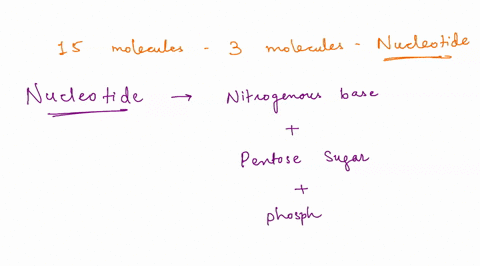 15 molecules - 3 molecules - Nucleotide
Nucleotide → Nitrogenous base
+
Pentose Sugar
+
phosph